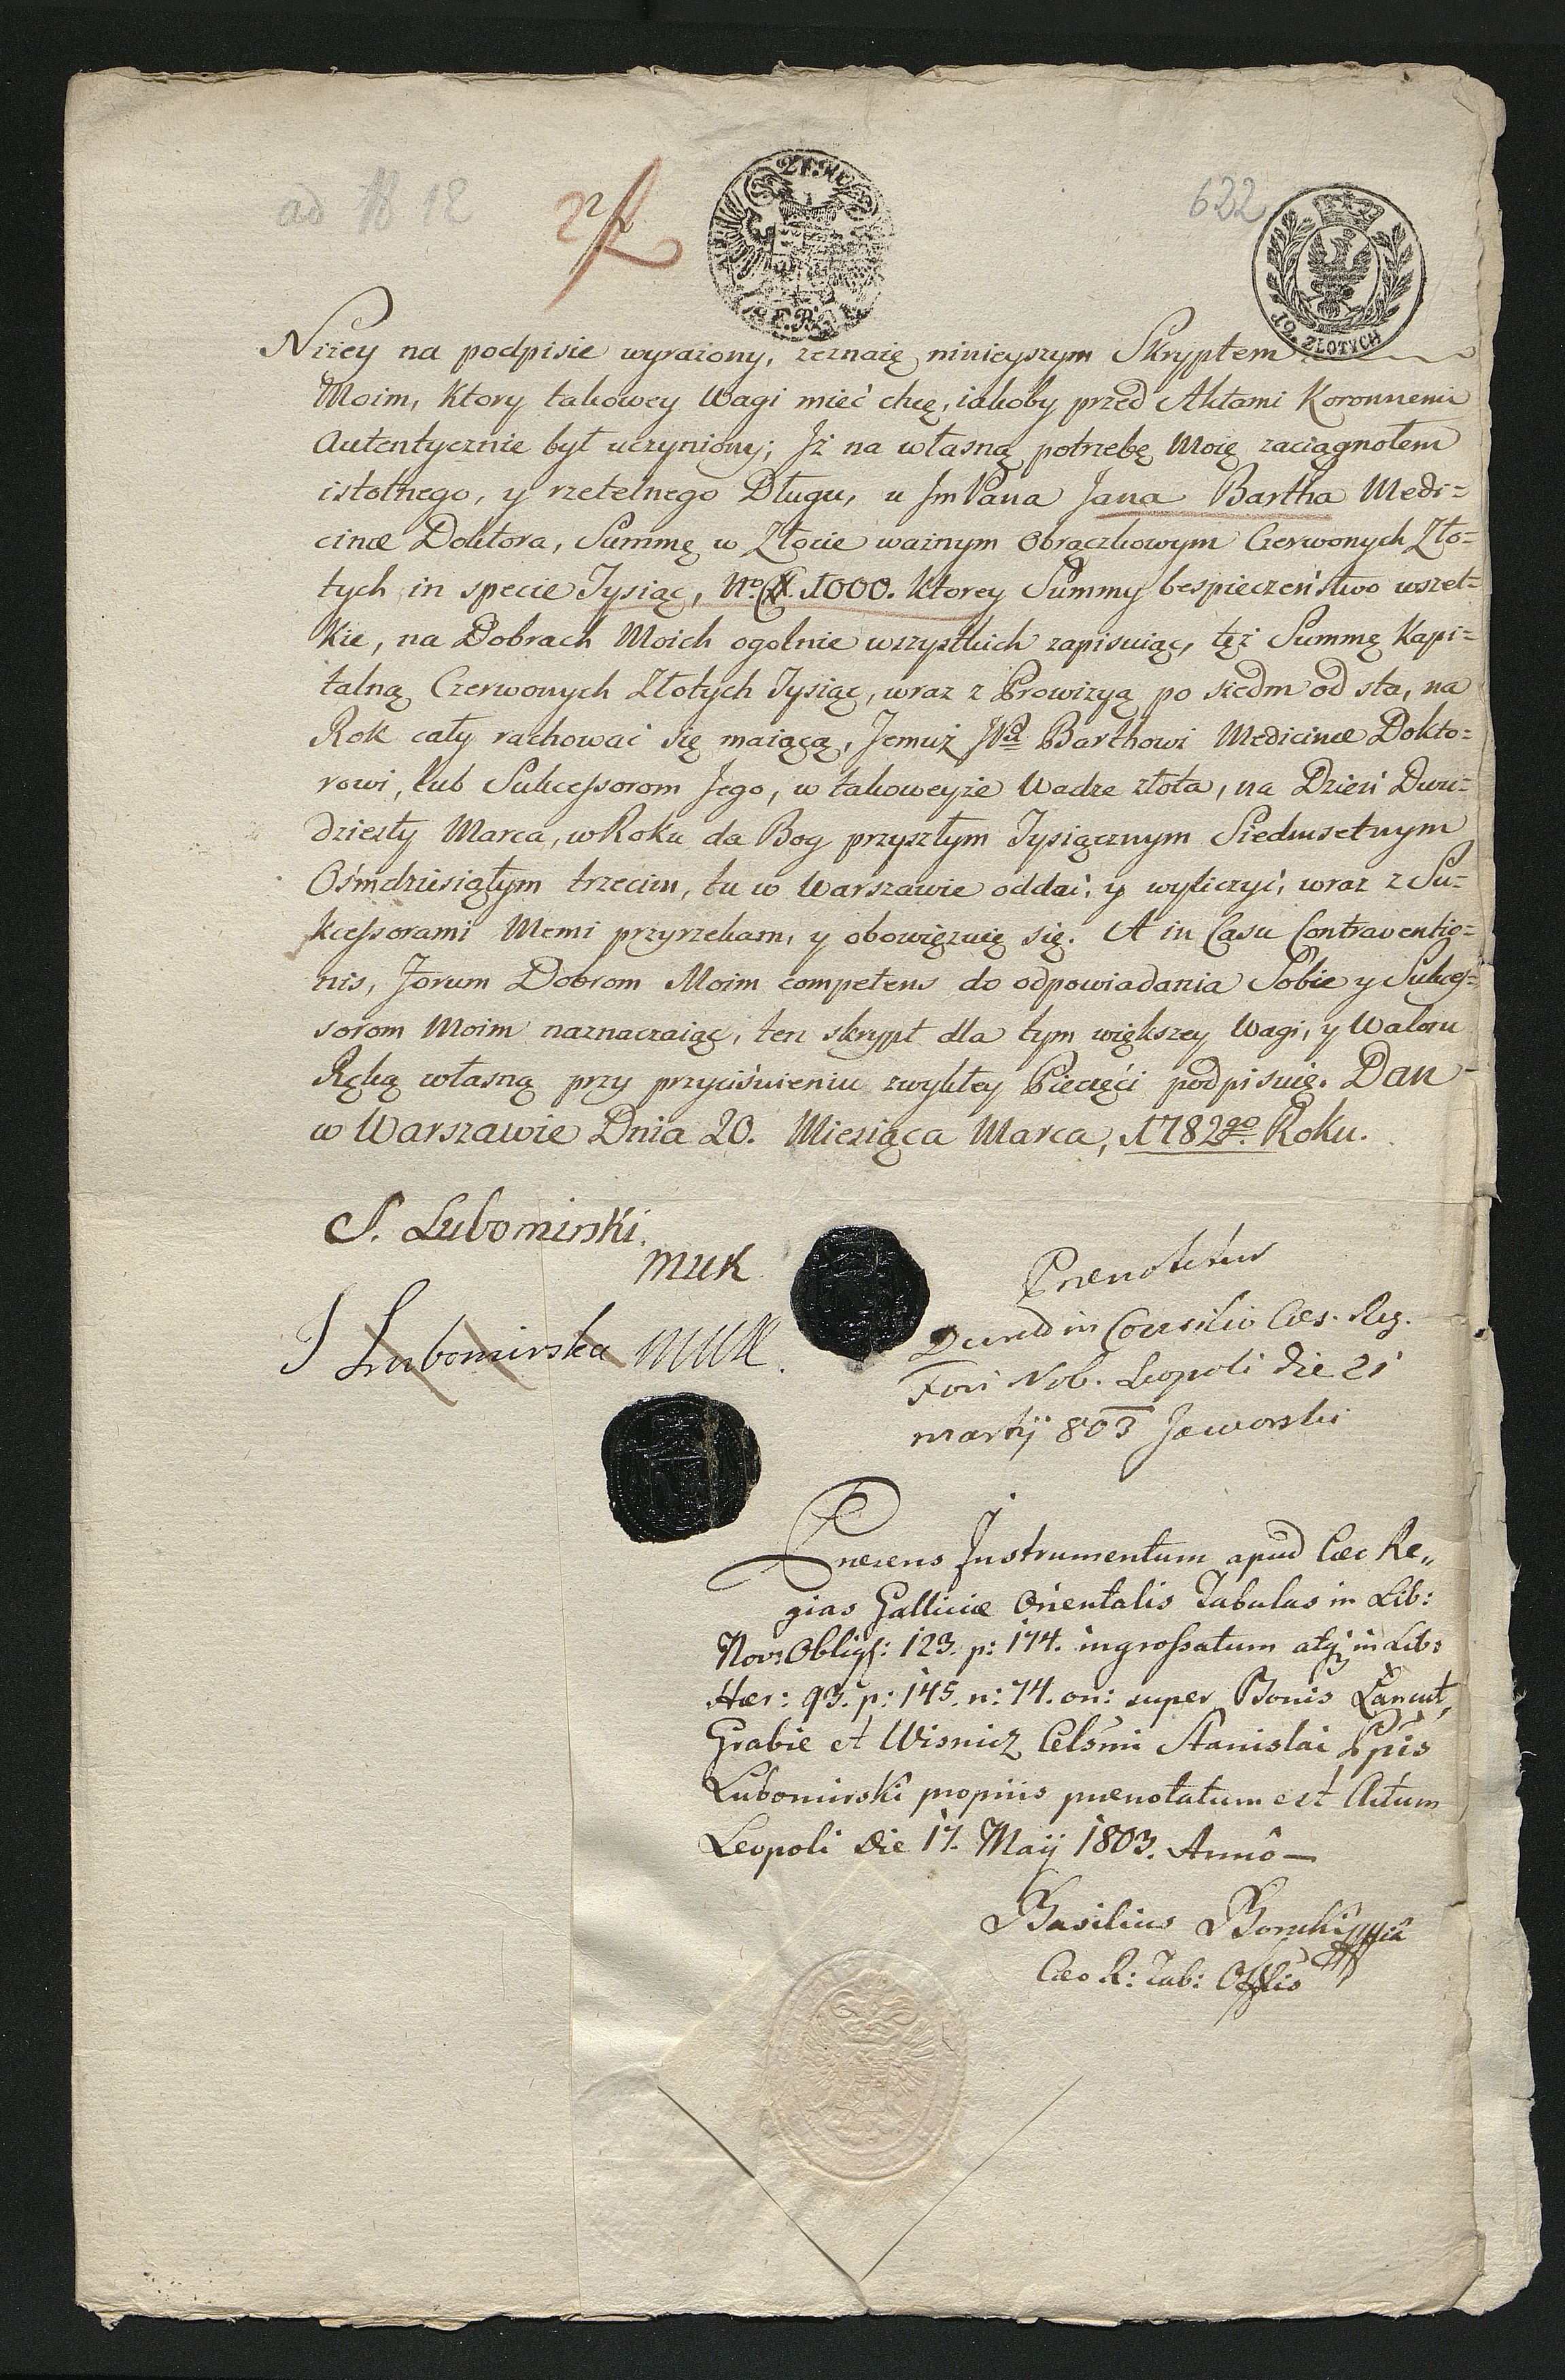 ad 18 12
622
10. ZŁOTYCH
Niżey na podpisie wyrażony, zeznaię ninieyszym Skryptem
Moim, Ktory takowey Wagi mieć chcę, iakoby przed Aktami Koronnemi
Autentycznie był uczyniony; Jż na własną potrzebę Moię zaciągnołem
istotnego, y rzetelnego Długu, u JmPana Jana Bartha Medi=
cinæ Doktora, Summę w Złocie ważnym Obrączkowym Czerwonych Zło=
tych in specie Tysiąc, No. # 1000. Ktorey Summy bespieczeństwo wszel=
kie, na Dobrach Moich ogolnie wszystkich zapisuiąc, tęż Summę Kapi=
talną Czerwonych Złotych Tysiąc, wraz z Prowizyą po siedm od sta, na
Rok cały rachować się maiącą, Jemuż Barthowi Medicinæ Dokto=
rowi, lub Sukcessorom Jego, w takoweyże Wadze złota, na Dzień Dwu=
dziesty Marca, w Roku da Bog przyszłym Tysiącznym Siedmsetnym
Ośmdziesiątym trzecim, tu w Warszawie oddać, y wyliczyć, wraz z Su=
kcessorami Memi przyrzekam, y obowięzuię się. A in Casu Contraventio=
nis, Forum Dobrom Moim competens do odpowiadania Sobie y Sukces=
sorom Moim naznaczaiąc, ten skrypt dla tym większey Wagi, y Waloru
Ręką własną przy przyciśnieniu zwykłey Pieczęci podpisuię. Dan
w Warszawie Dnia 20. Miesiąca Marca, 1782go. Roku.
S. Lubomirski
muk
J Lubomirska muk.
Prænotetur
Decret in Consilio Cæs. Reg.
Fori Nob. Leopoli die 21
martij 803 Jaworski
Præsens Instrumentum apud Cæs Re„
gias Galliciæ Orientalis Tabulas in Lib:
Nov: Oblig: 123. p: 174. ingrossatum atq in Lib:
Hær: 93. p: 145. n: 74. on: super Bonis Łancut,
Grabie et Wisnicz Celsmi Stanislai Ppis
Lubomirski propriis prænotatum est Actum
Leopoli die 17. Maij 1803. Anno —
Basilius
Cæs R: Tab: Offlis